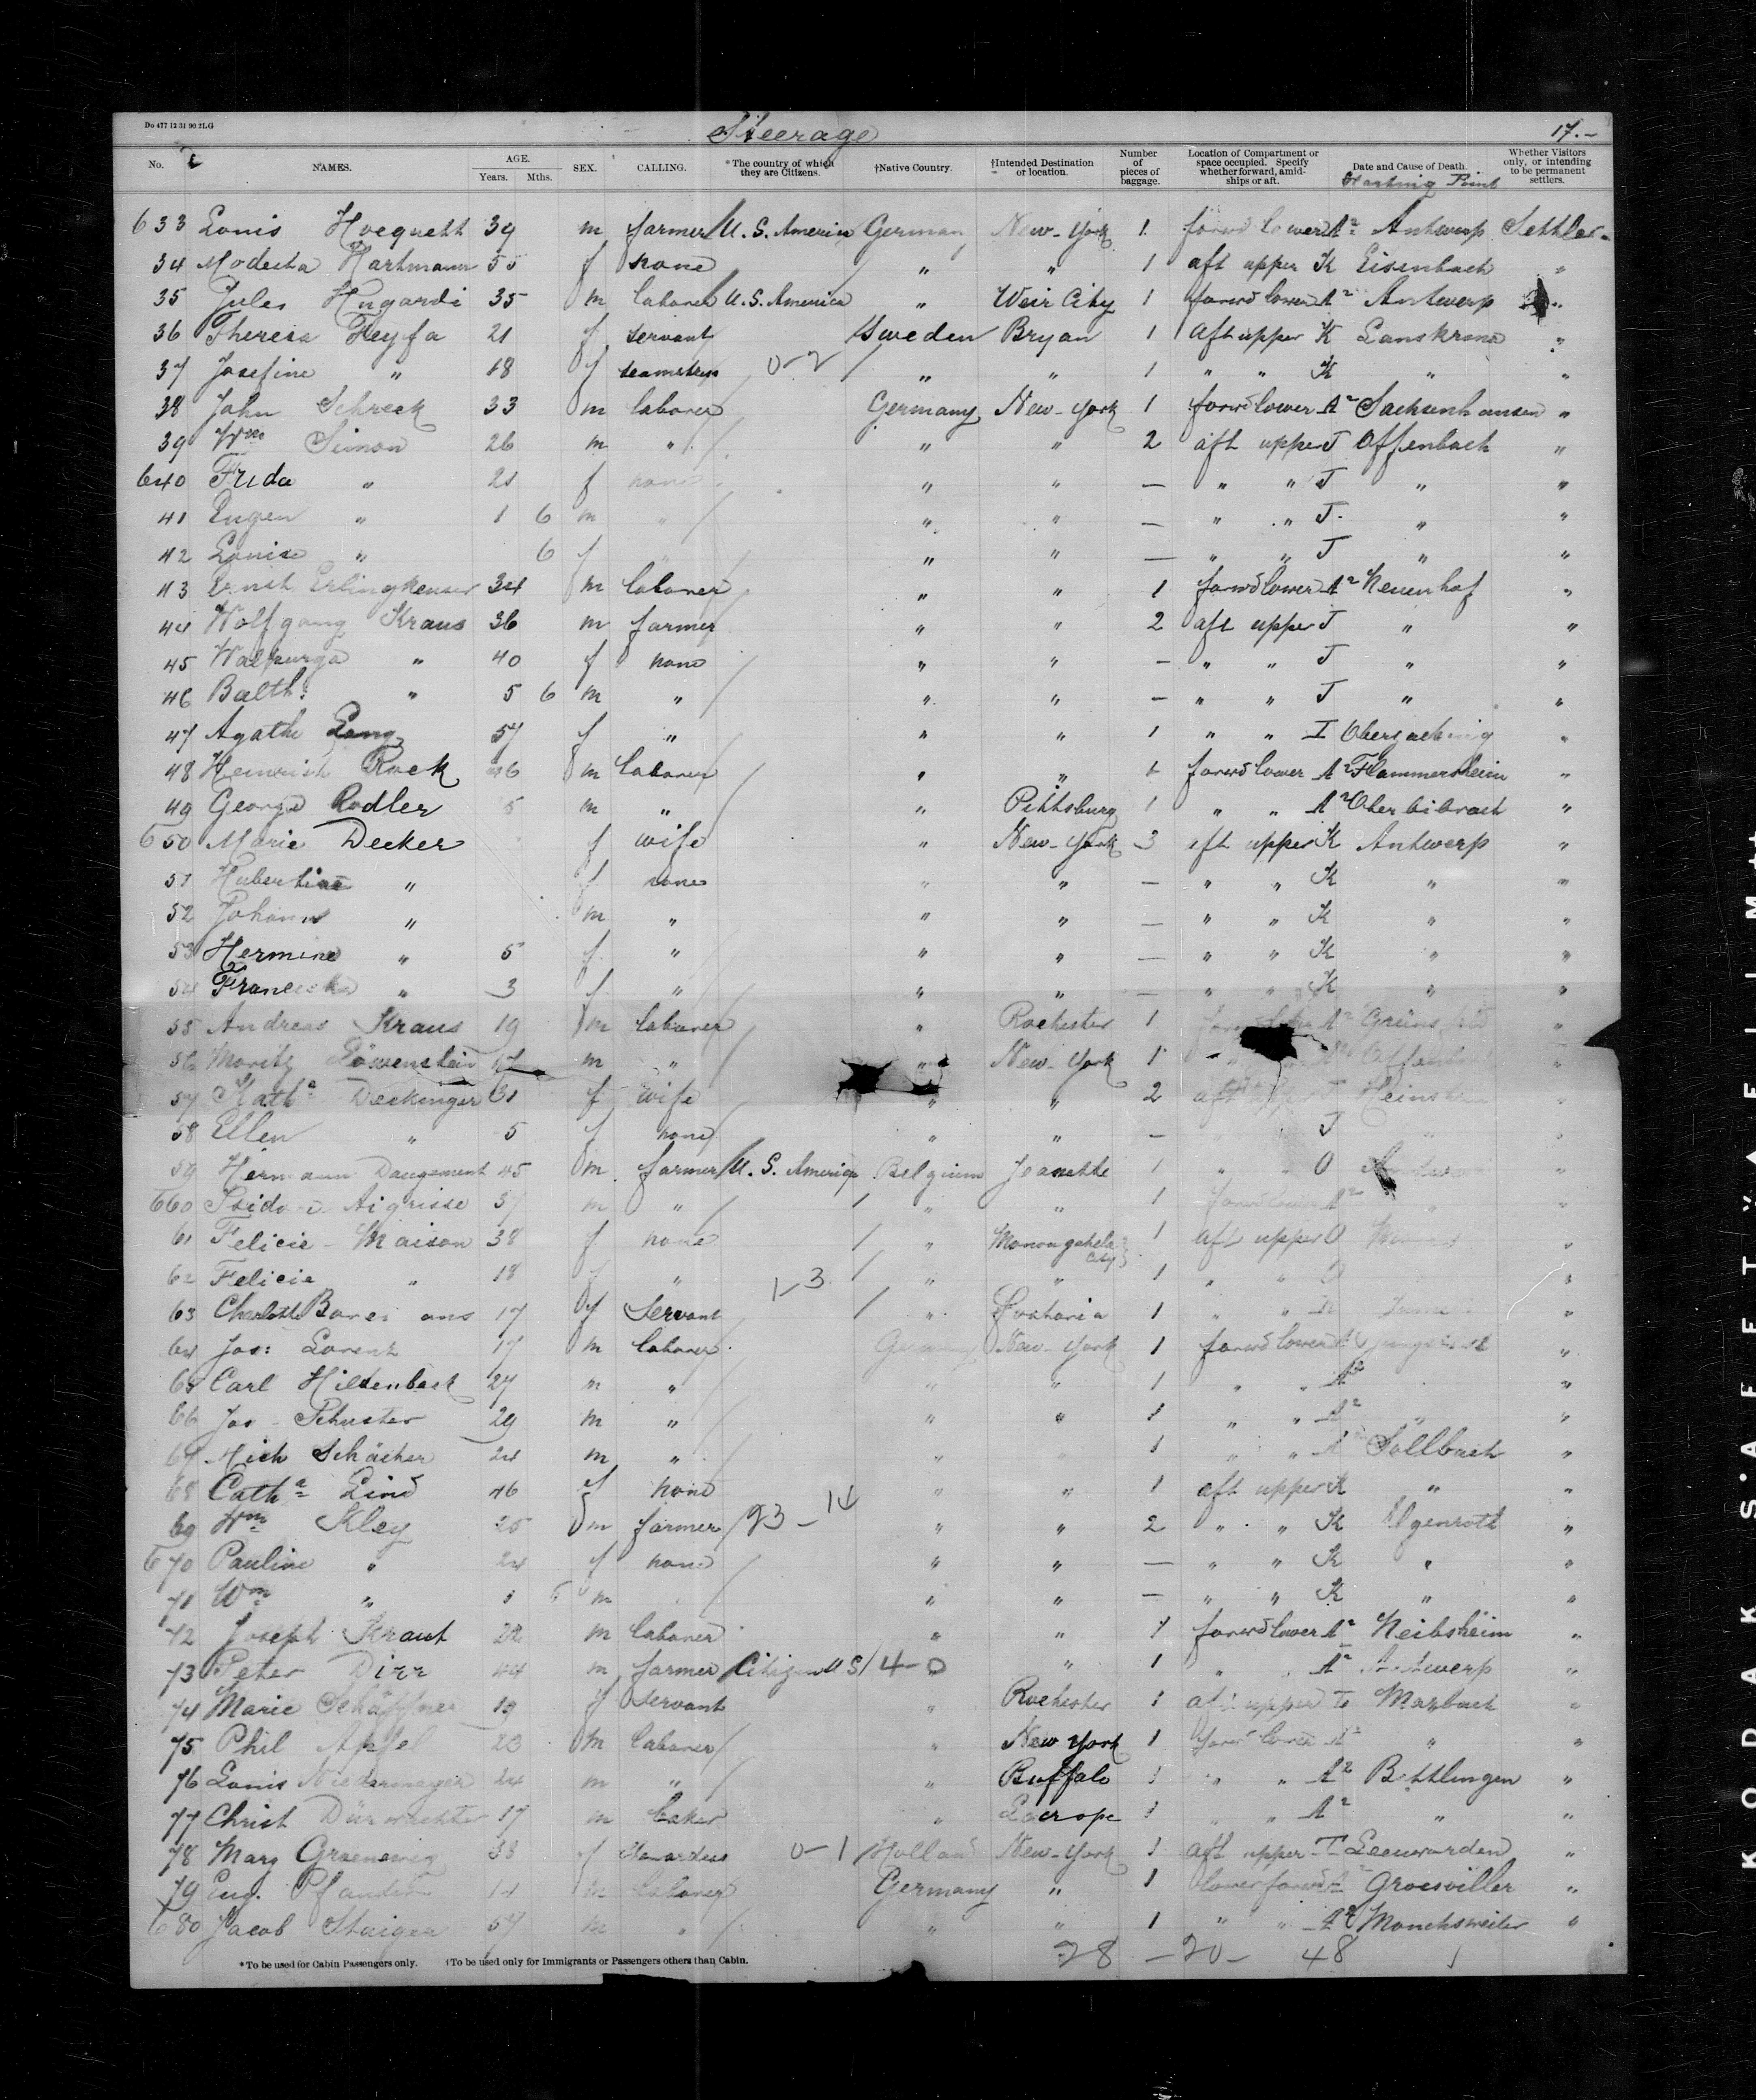 Do 477 12 31 90 2LG
Steerage 17.-
No. NAMES. AGE. Years. Mths. SEX. CALLING. *The country of which they are Citizens. †Native Country. †Intended Destination or location. Number of pieces of baggage. Location of Compartment or space occupied. Specify whether forward, amidships or aft. Date and Cause of Death. Starting Point Whether Visitors only, or intending to be permanent settlers.
633 Louis Hocquett 39 m farmer U.S. America German New-York 1 forwd lower A2 Antwerp Settler
34 Modesta Hartmann 55 f none " " 1 aft upper K Eisenbach "
35 Jules Hugardi 35 m laborer U.S. America " Weir City 1 forwd lower A2 Antwerp "
36 Theresa Feyfa 21 f servant Sweden Bryan 1 aft upper K Lanskrona "
37 Josefine " 18 f seamstress 0-2 " " 1 " " K " "
38 John Schreck 33 m laborer Germany New-York 1 forwd lower A2 Sachsenhausen "
39 Wm Simon 26 m " " " 2 aft upper J Offenbach "
640 Frida " 21 f none " " — " " J " "
41 Eugen " 1 6 m " " " — " " J " "
42 Louise " 6 f " " " — " " J " "
43 Ernst 34 m laborer " " 1 forwd lower A2 Neuenhof "
44 Wolfgang Kraus 36 m farmer " " 2 aft upper J " "
45 Walburga " 40 f none " " — " " J " "
46 Balth: " 5 6 m " " " — " " J " "
47 Agathe Lang 57 f " " " 1 " " I "
48 Heinrich Rock 46 m laborer " " 1 forwd lower A2 Flammersheim "
49 George Rodler m " " Pittsburg 1 " " A2 "
650 Marie Decker f wife " New-York 3 aft upper K Antwerp "
51 Hubertine " f none " " — " " K " "
52 Johann " m " " " — " " K " "
53 Hermine " 5 f " " " — " " K " "
54 Franciska " 3 f " " " — " " K " "
55 Andreas Kraus 19 m laborer " Rochester 1 A2 "
56 Moritz Löwenstein m " " New-York 1 "
57 Katha Deckinger 31 f wife " " 2 aft upper J "
58 Ellen " 5 f none " " — J " "
59 Hermann Daugement 45 m farmer U.S. America Belgium Jeanette 1 " " O "
660 Isidore Aigrisse 37 m " " " 1 forwd lower A2 " "
61 Felicie Maison 38 f none " Monongahela City 1 aft upper O "
62 Felicie " 18 f " 1-3 " " 1 " " O "
63 Charlotte 17 f Servant " 1 " " "
64 Jos: Lorenz 17 m laborer Germany New-York 1 forwd lower "
65 Carl Hildenbeck 27 m " " " 1 " " A2 "
66 Jos Schuster 29 m " " " 1 " " A2 " "
67 Mich Schächer 24 m " " 1 " " A2 Sollbach "
68 Catha Lind 46 f none " " 1 aft upper K " "
69 Wm Kley 25 m farmer 33-14 " " 2 " " K Ilgenroth "
670 Pauline " 24 f none " " — " " K " "
71 Wm " 1 6 m " " — " " K " "
72 Joseph Kraut m laborer " " 1 forwd lower A2 Neibsheim "
73 Peter Dirr 44 m farmer Citizen US 4-0 " 1 " " A2 Antwerp "
74 Marie Schäffner 19 f servant " Rochester 1 aft upper Marbach "
75 Phil Apfel 23 m laborer " New York 1 forwd lower A2 " "
76 Louis Niedermayer 24 m " " Buffalo 1 " " A2 Bettlingen "
77 Christ Dürwachter 17 m baker " Lacrope 1 " " A2 " "
78 Mary Groenewig 38 f Stewardess 0-1 Holland New-York 1 aft upper T Leeuwarden "
79 Eug. Pfander m laborer Germany " 1 lower forwd A2 Groesviller "
680 Jacob Staiger 57 m " " " 1 " " A2 Monchsweiler "
28 - 20 - 48
*To be used for Cabin Passengers only. †To be used only for Immigrants or Passengers others than Cabin.
KODAK SAFETY FILM